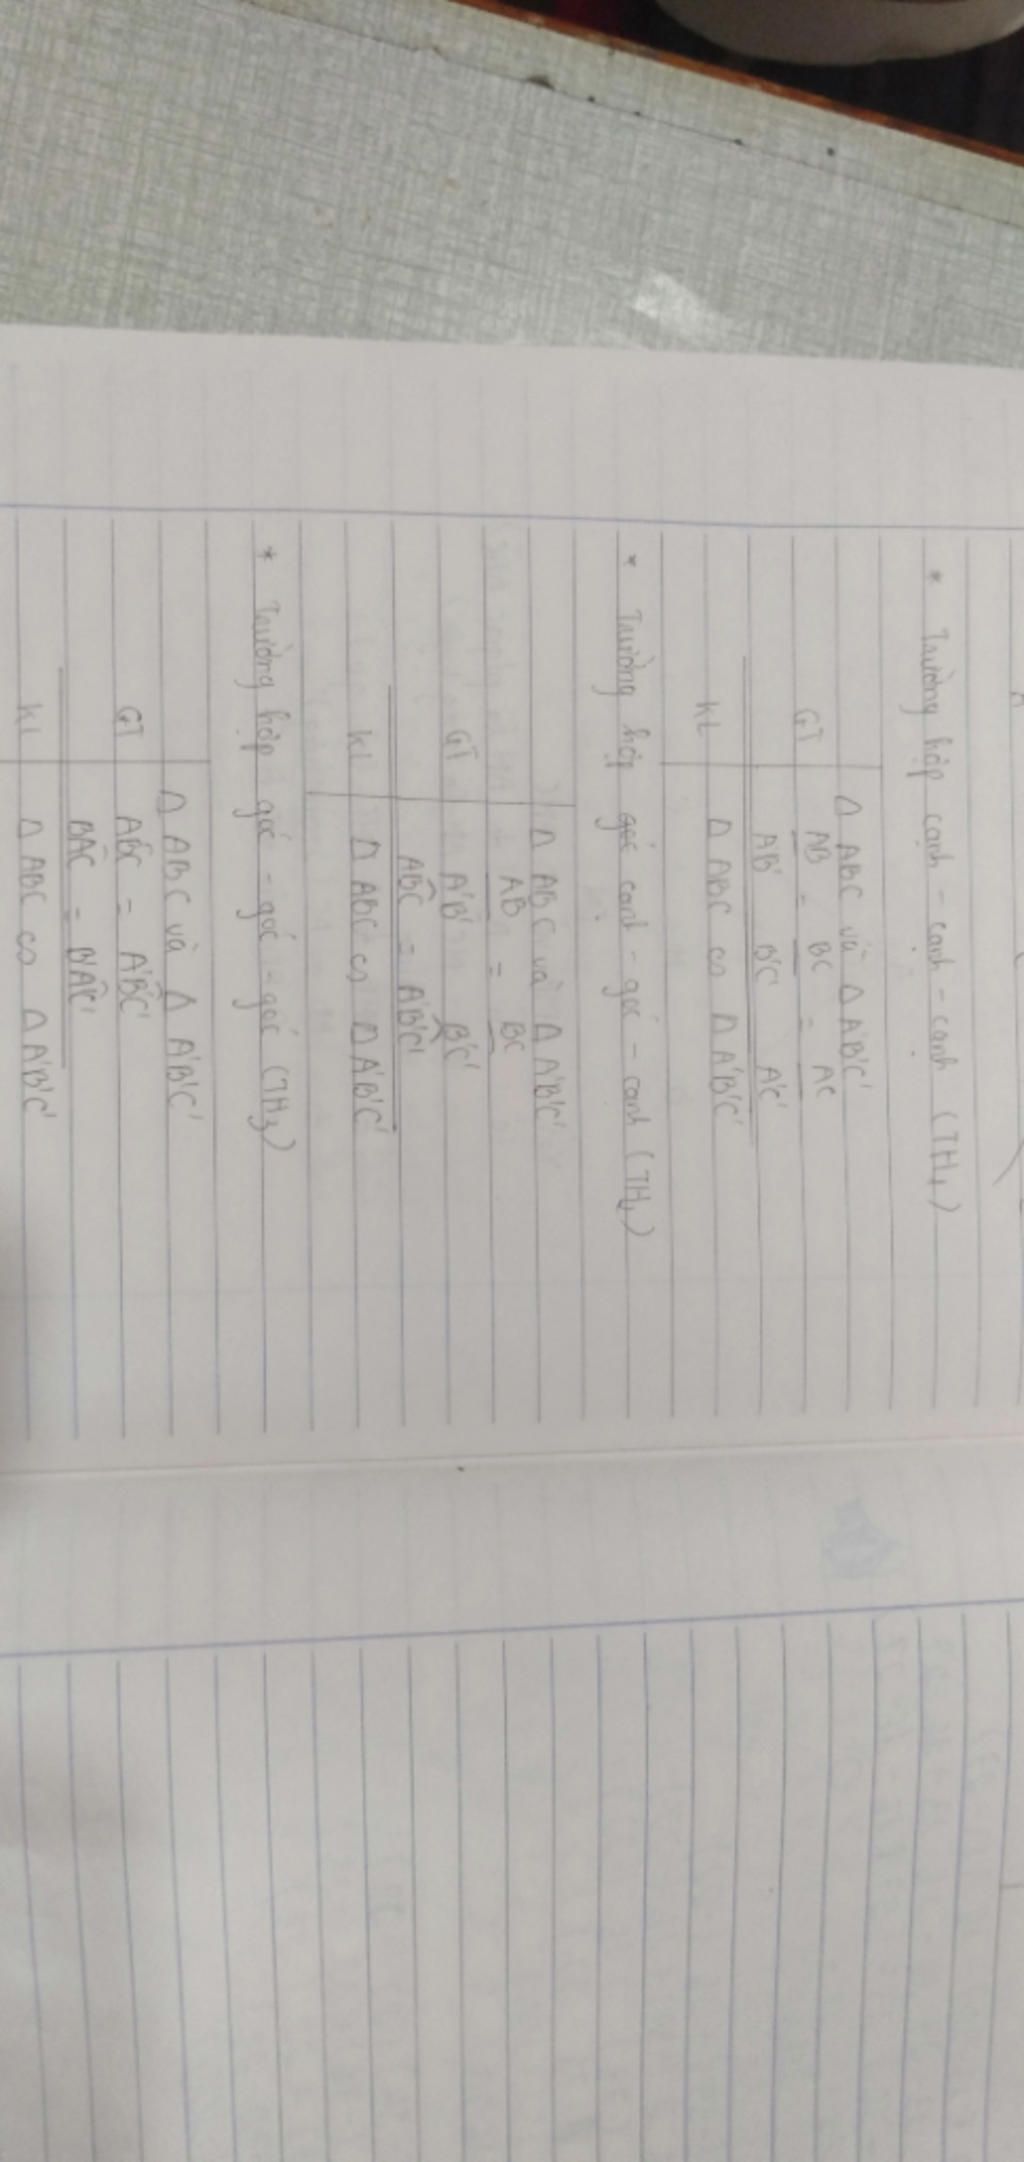 * Trường hợp cạnh - cạnh - cạnh (TH1)
Δ ABC và Δ A'B'C'
GT AB = BC = AC
AB' B'C' A'C'
KL Δ ABC ∽ Δ A'B'C'
* Trường hợp cạnh - góc - cạnh (TH2)
Δ ABC và Δ A'B'C'
AB = BC
GT A'B' B'C'
ABC = A'B'C'
KL Δ ABC ∽ Δ A'B'C'
* Trường hợp góc - góc - góc (TH3)
Δ ABC và Δ A'B'C'
GT ABC = A'B'C'
BAC = B'A'C'
KL Δ ABC ∽ Δ A'B'C'